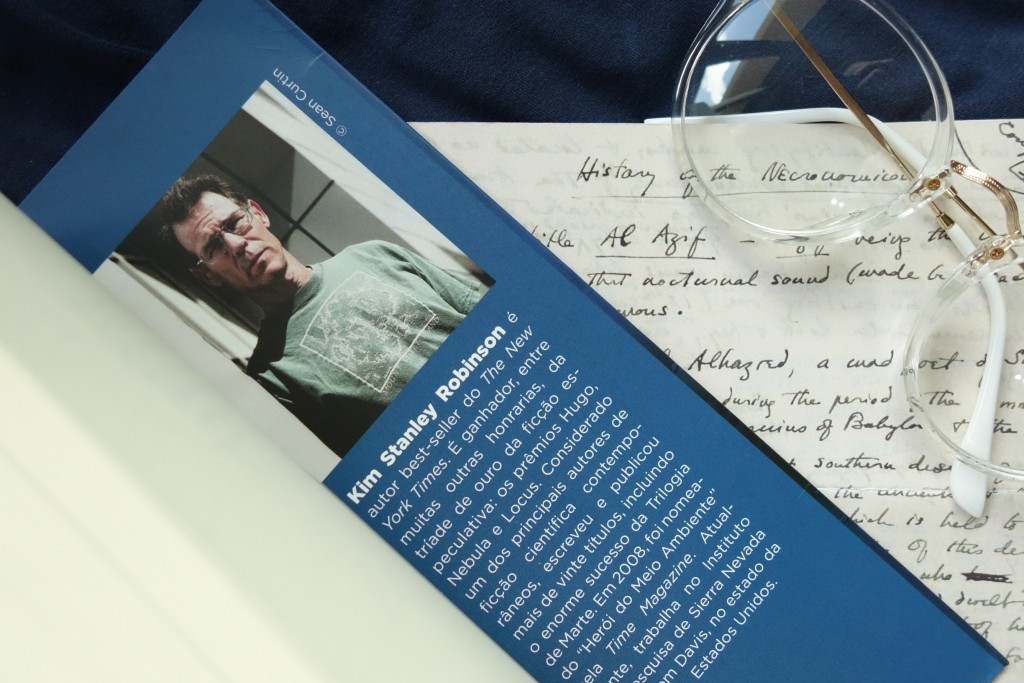 © Sean Curtin
Kim Stanley Robinson é
autor best-seller do The New
York Times. É ganhador, entre
muitas outras honrarias, da
tríade de ouro da ficção es-
peculativa: os prêmios Hugo,
Nebula e Locus. Considerado
um dos principais autores de
ficção científica contempo-
râneos, escreveu e publicou
mais de vinte títulos, incluindo
o enorme sucesso da Trilogia
de Marte. Em 2008, foi nomea-
do "Herói do Meio Ambiente"
ela Time Magazine. Atual-
nte, trabalha no Instituto
esquisa de Sierra Nevada
em Davis, no estado da
Estados Unidos.
History of the Necronomicon
title Al Azif —
that nocturnal sound (made b
Alhazred, a mad poet of S
during the period of the
of Babylon & the
southern des
the
which is held to
Of this de
who
dwelt